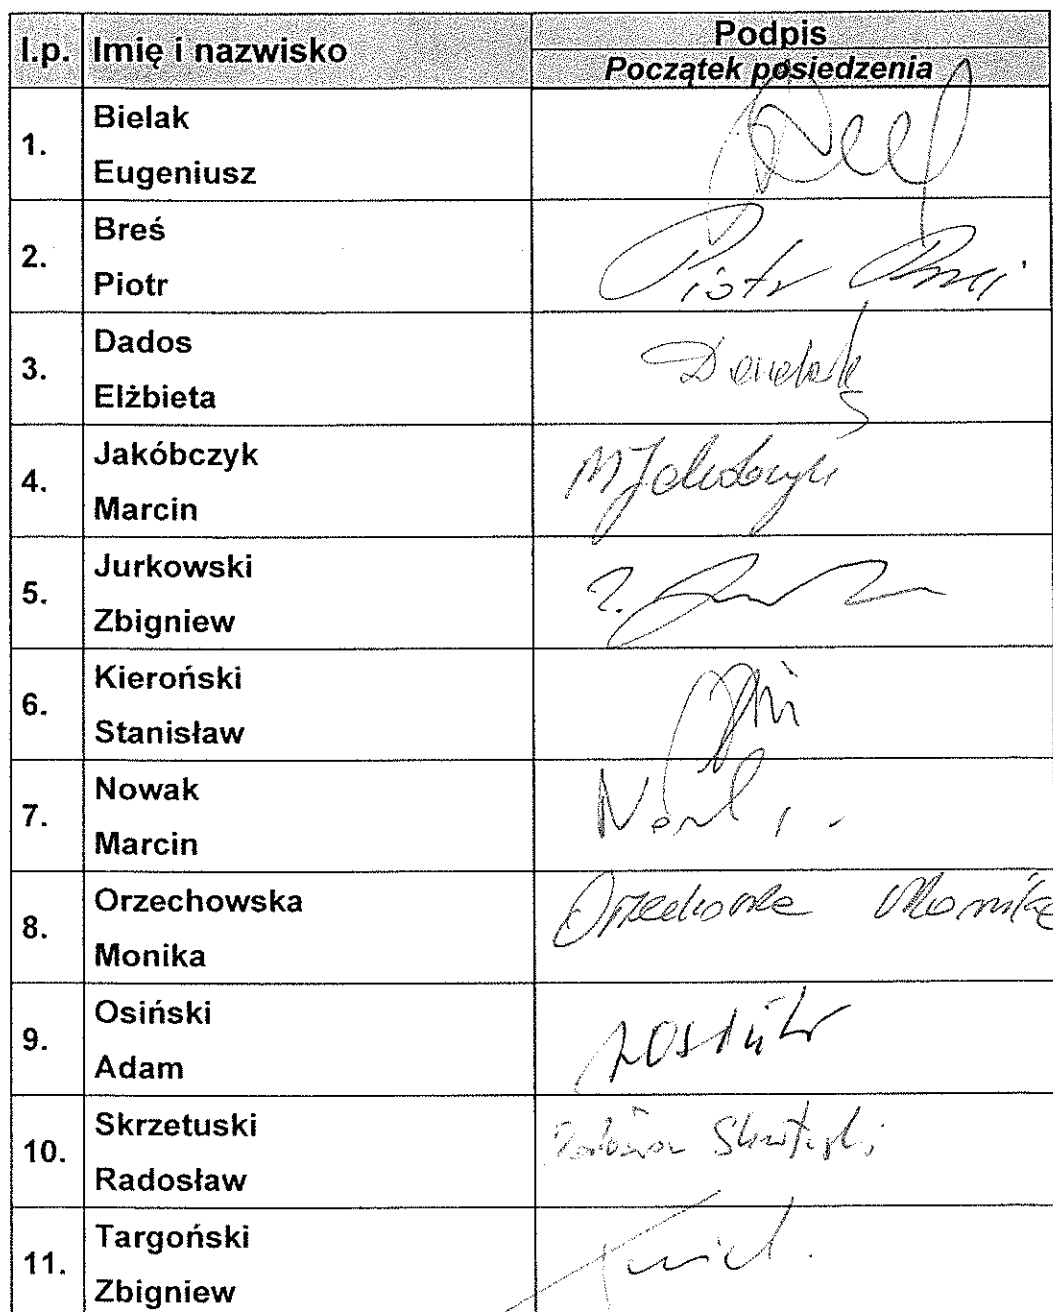 l.p. Imię i nazwisko Podpis
Początek posiedzenia
1. Bielak
Eugeniusz
2. Breś
Piotr
Piotr
3. Dados
Elżbieta
4. Jakóbczyk
Marcin
M Jakóbczyk
5. Jurkowski
Zbigniew
6. Kieroński
Stanisław
7. Nowak
Marcin
8. Orzechowska
Monika
Orzechowska Monika
9. Osiński
Adam
10. Skrzetuski
Radosław
11. Targoński
Zbigniew